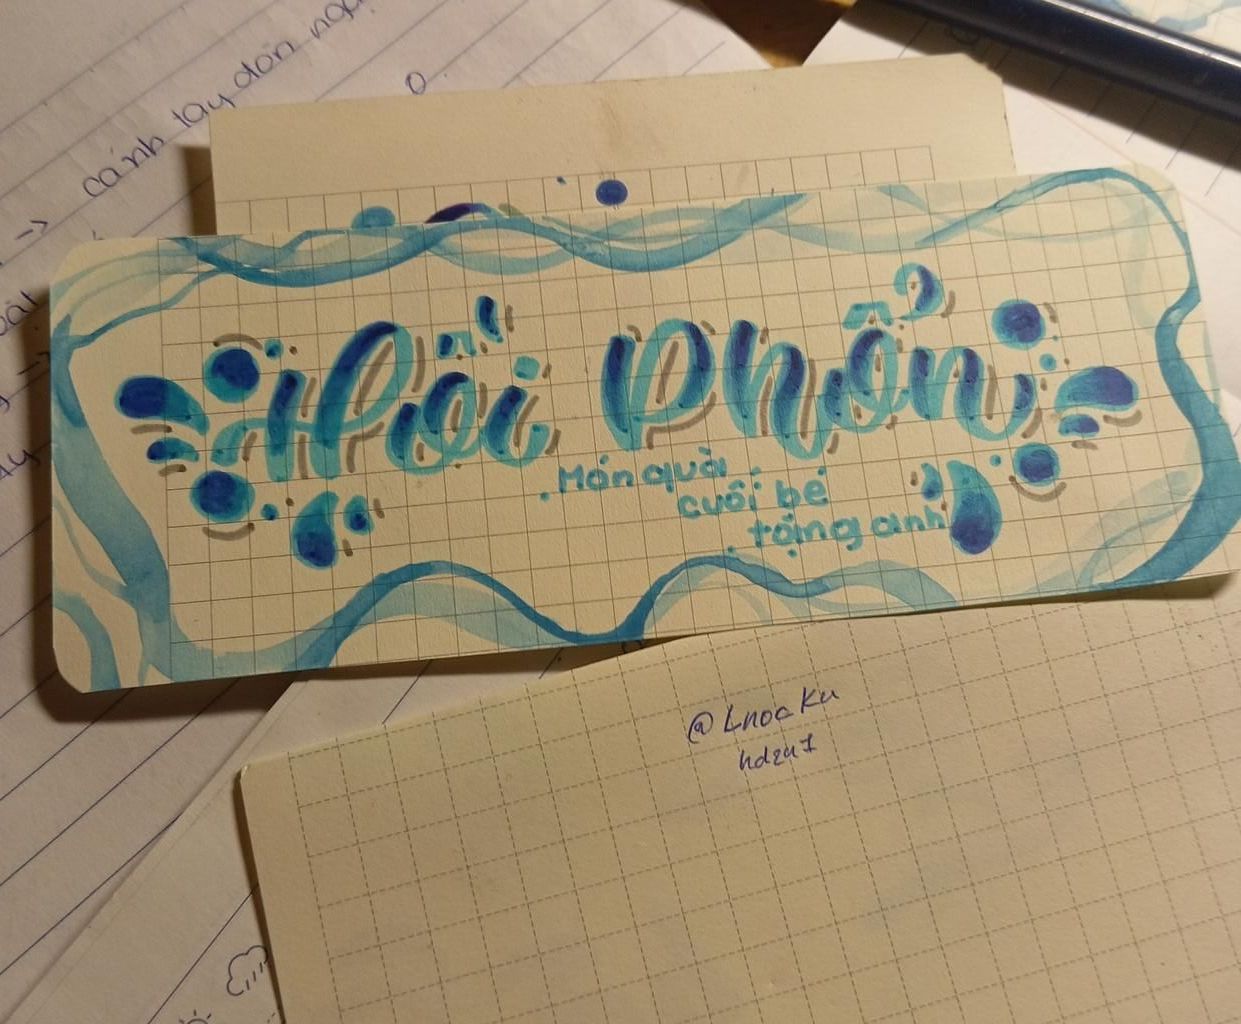 -> cánh tay đòn
Hối Phổn
Món quà
cuối bé
tặng anh
@Lnoc Ku
hdzu1